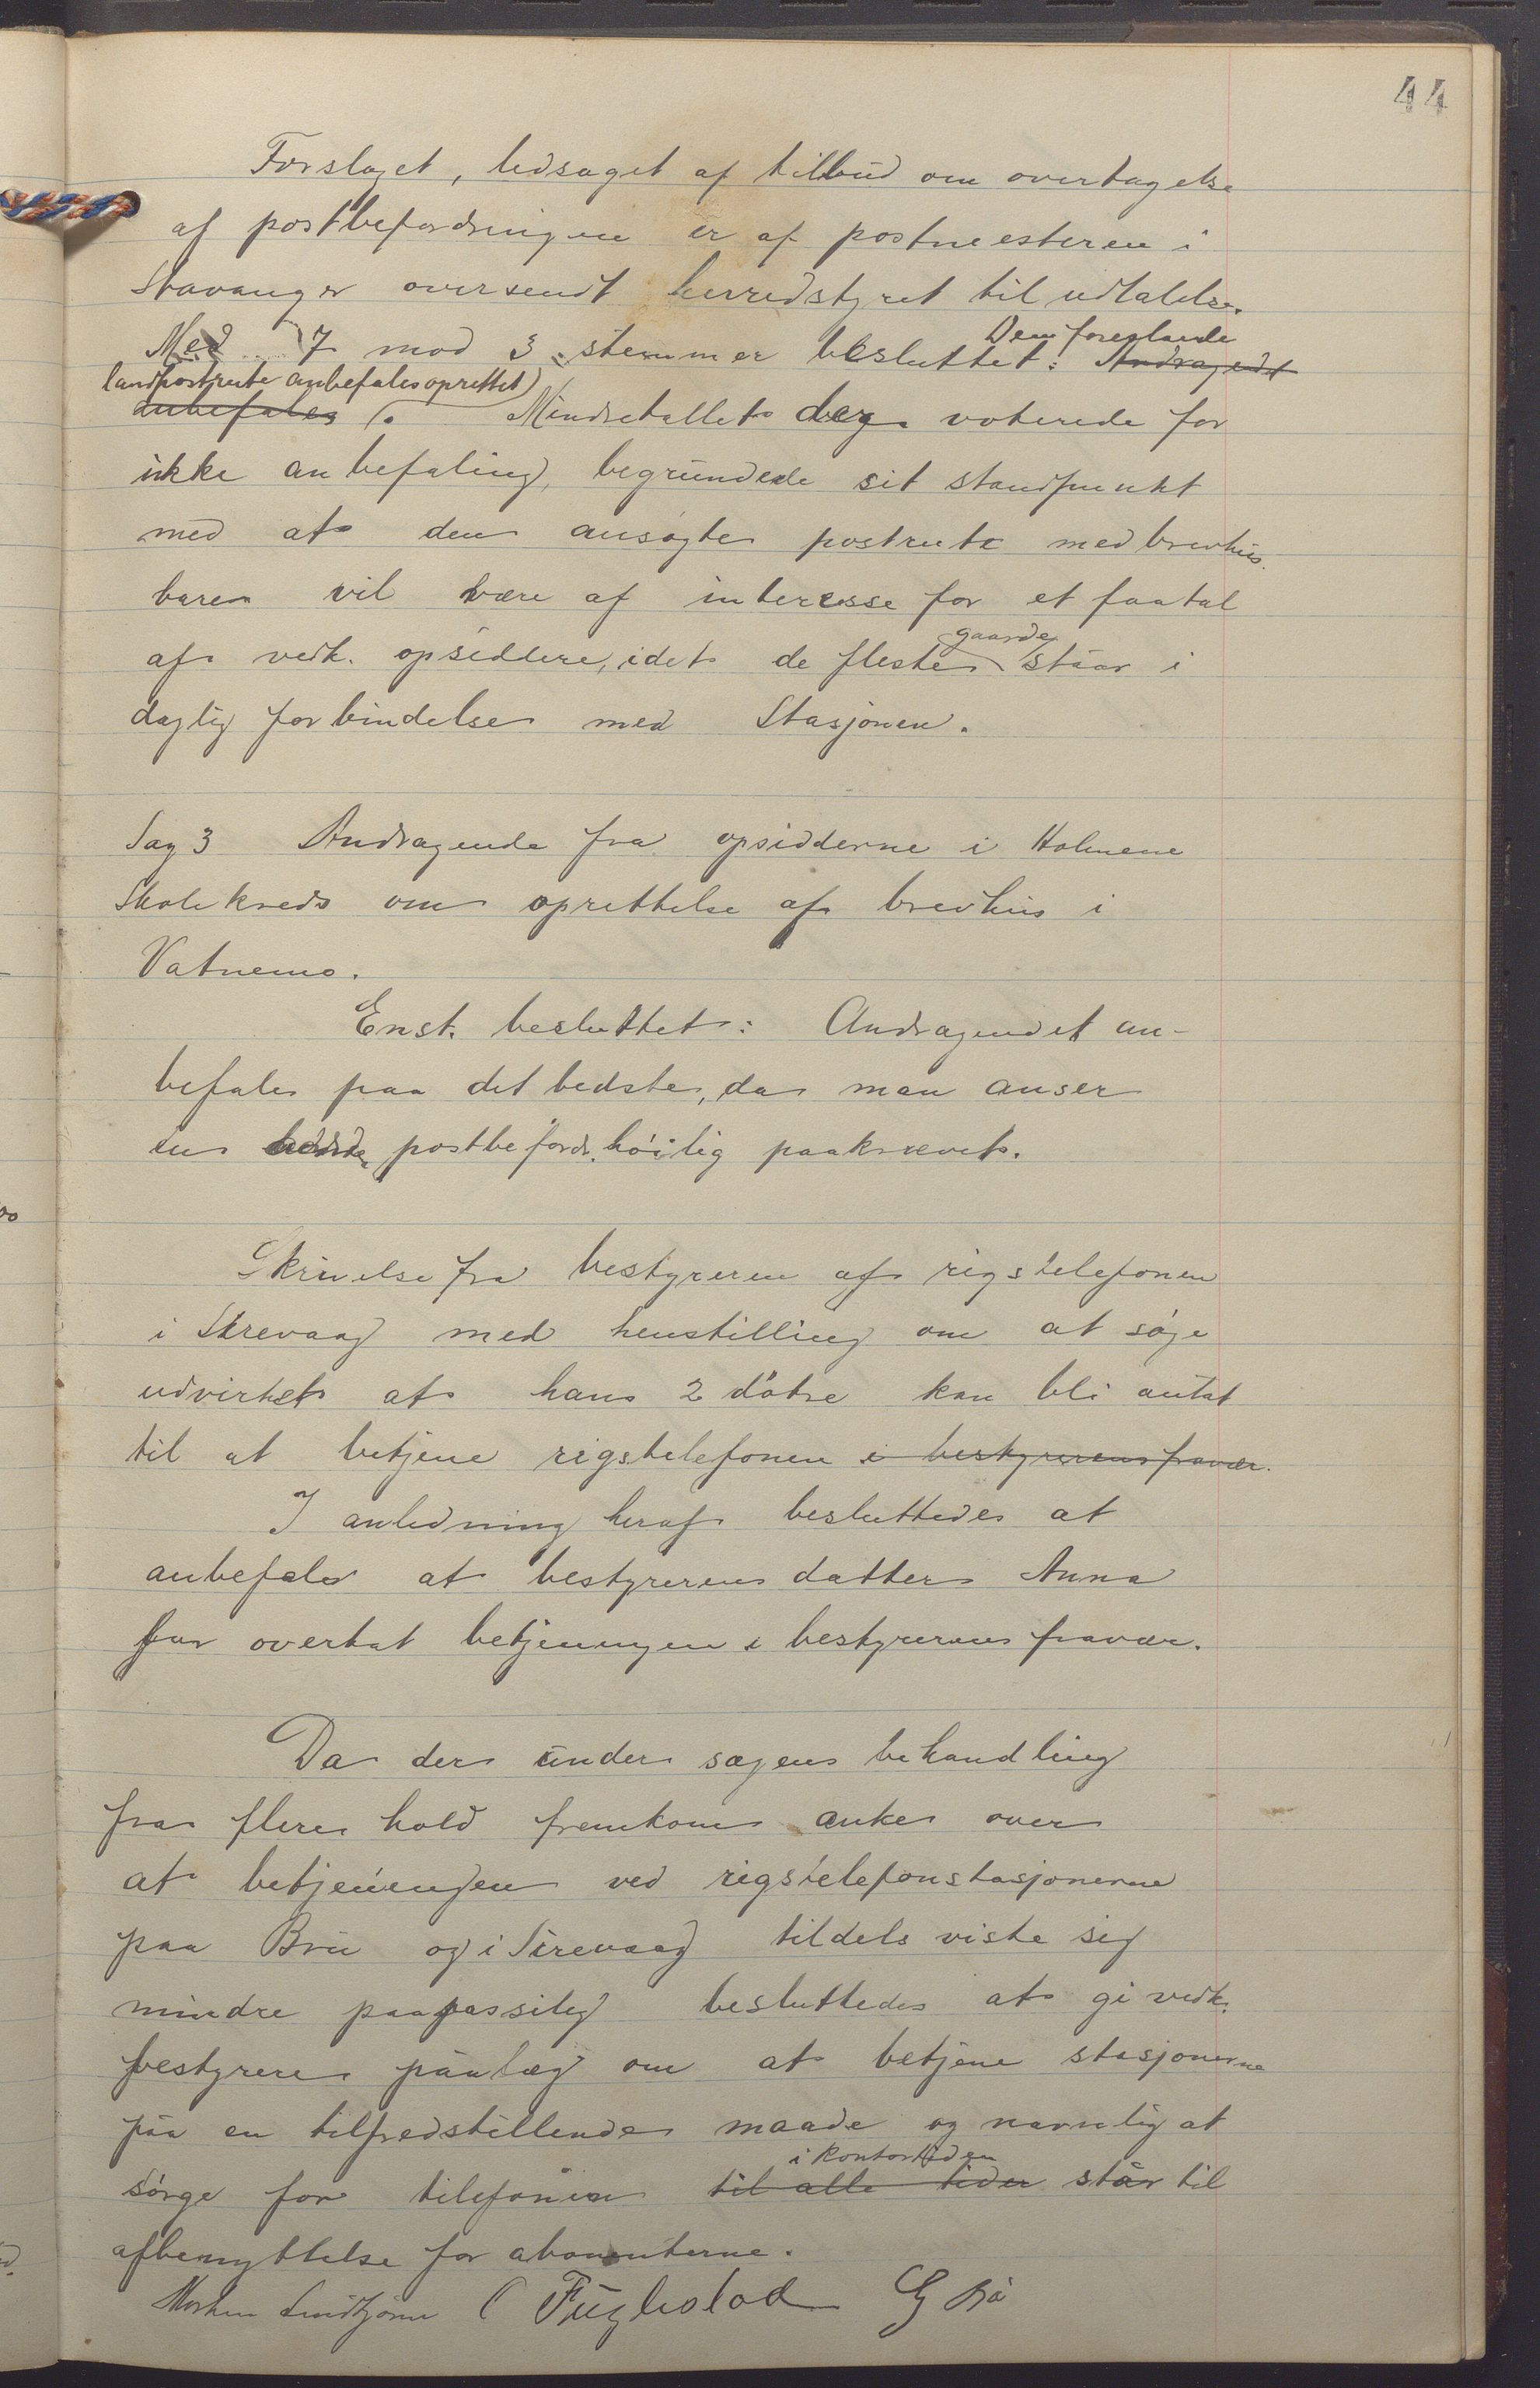 44
Forslaget, ledsaget af tilbud om overtagelse
af postbefordringen er af postmesteren i
Stavanger oversendt herredstyret til udtalelse.
Med 7 mod 3 stemmer besluttet: Andragendet
Den foreslaade
landpostrute anbefales oprettet
anbefales. Mindretallet der voterede for
ikke anbefaling, begrundede sit standpunkt
med at den ansøgte postrute med brevhus
bare vil være af interesse for et faatal
af vedk. opsiddere, idet de fleste gaarde staar i
daglig forbindelse med Stasjonen.
Sag 3 Andragende fra opsidderne i Holmene
Skolekreds om oprettelse af brevhus i
Vatnemo.
Enst. besluttet: Andragendet an-
befales paa det bedste, da man anser
en bedre postbefordr. høilig paakrævet.
Skrivelse fra bestyreren af rigstelefonen
i Sirevaag med henstilling om at søge
udvirket at hans 2 døtre kan bli antat
til at betjene rigstelefonen i bestyrerens fravær.
I anledning heraf besluttedes at
anbefale at bestyrerens datter Anna
faar overtat betjeningen i bestyrerens fravær.
Da der under sagens behandling
fra flere hold fremkom anke over
at betjeningen ved rigstelefonstasjonerne
paa Bru og i Sirevaag tildels viste sig
mindre paapasselig besluttedes at gi vedk.
bestyrere paalæg om at betjene stasjonerne
paa en tilfredstillende maade og navnlig at
i kontortiden
sørge for telefonen til alle tider står til
afbenyttelse for abonenterne.
Morten Lindtjørn C Fuglestad G